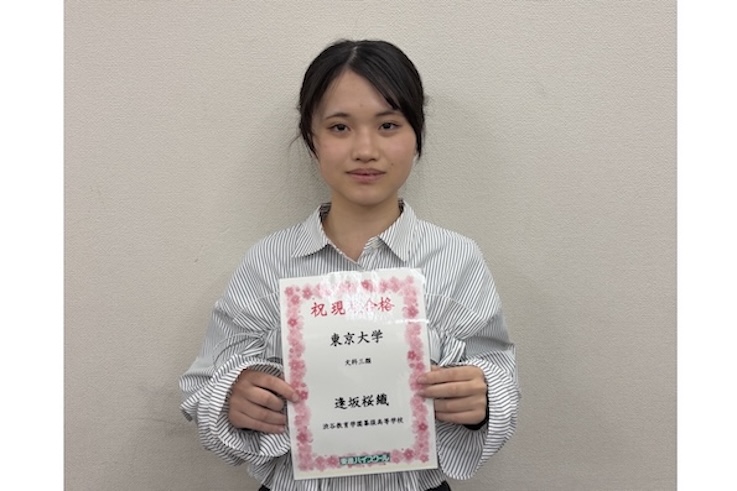 祝 現役合格
東京大学
文科三類
逢坂桜織
渋谷教育学園幕張高等学校
東進ハイスクール